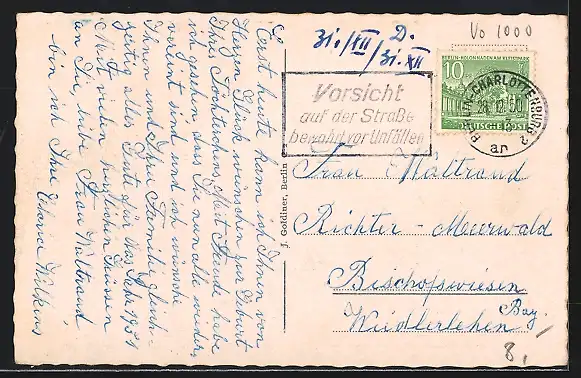 Vo 1000
31./XII D.
/31.XII
BERLIN-KOLONNADEN AM KLEISTPARK
10
DEUTSCHE POST
BERLIN-CHARLOTTENBURG 2
28.12.50
an
Vorsicht
auf der Straße
bewahrt vor Unfällen
Erst heute kann ich Ihnen von
Herzen Glück wünschen zur Geburt
Ihres Töchterchens. Mit Freude habe
ich gesehen, dass Sie nun alle wieder
vereint sind und ich wünsche
Ihnen und Ihrer Familie gleich-
zeitig alles Gute für das Jahr 1951
Mit vielen herzlichen Grüssen
an Sie, liebe Frau Waltraud
bin ich Ihre
J. Goldiner, Berlin
Frau Waltraud
Richter-Meerwald
Bischofswiesen
Bay.
8,-